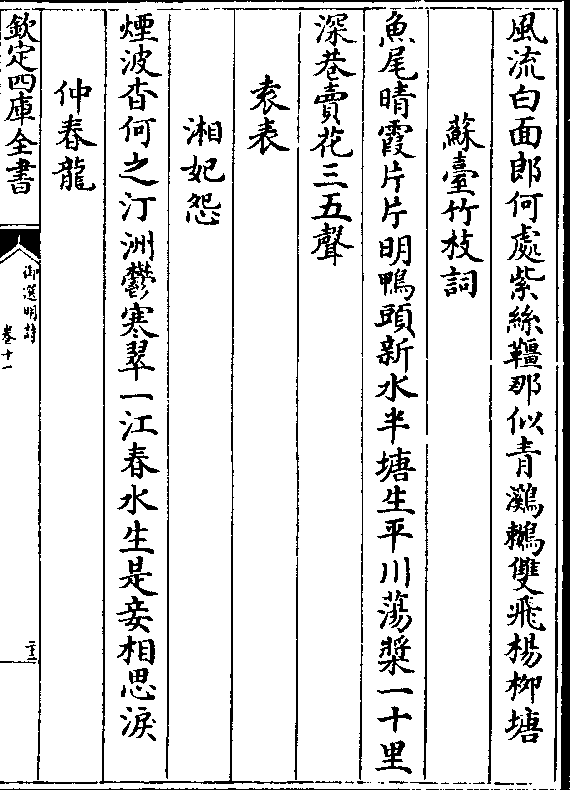 風流白面郎何處紫絲韁那似青鸂鶒雙飛楊柳塘
蘇臺竹枝詞
魚尾晴霞片片明鴨頭新水半塘生平川蕩槳一十里
深巷賣花三五聲
袁表
湘妃怨
煙波杳何之汀洲鬱寒翠一江春水生是妾相思淚
仲春龍
欽定四庫全書
御選明詩
卷十一
二十二